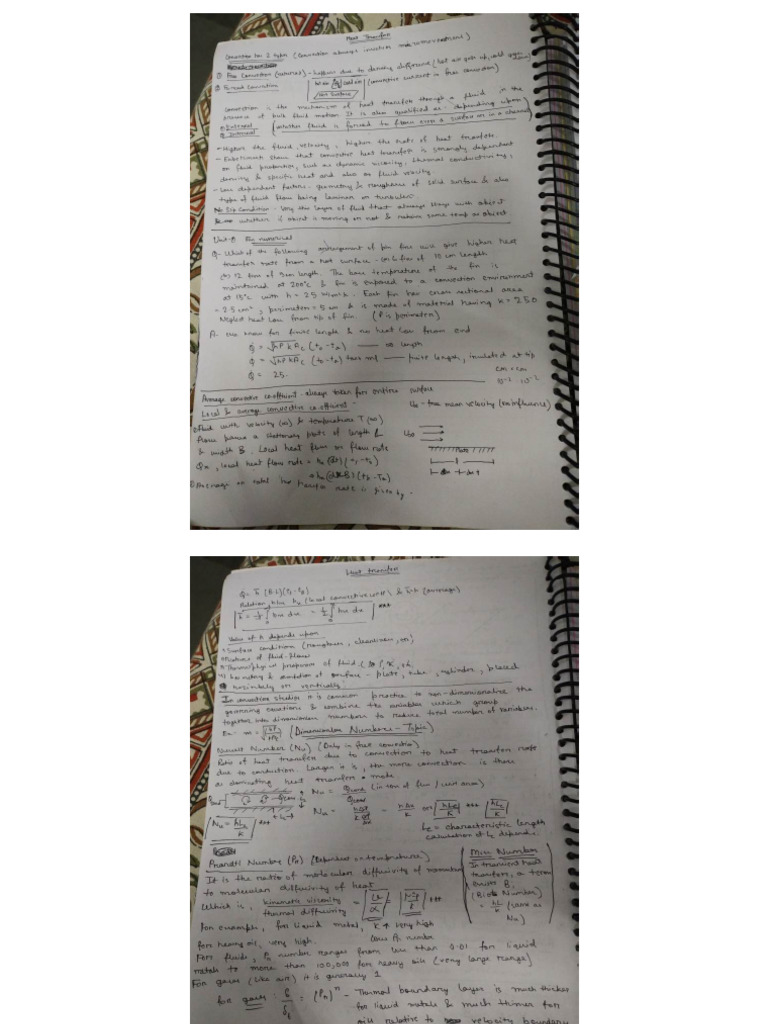 Heat Transfer
Convection has 2 types (Convection always involves movement)
① Free Convection (natural) - happens due to density difference (hot air goes up, cold again down)
② Forced Convection
hot air cold air
Hot Surface
(convective current in free convection)
Convection is the mechanism of heat transfer through a fluid in the
presence of bulk fluid motion. It is also qualified as - depending upon
① External
② Internal
(whether fluid is forced to flow over a surface or in a channel)
- Higher the fluid velocity, higher the rate of heat transfer.
- Experiments show that convective heat transfer is strongly dependent
on fluid properties, such as dynamic viscosity, thermal conductivity,
density & specific heat and also on fluid velocity
- Less dependent factors - geometry & roughness of solid surface & also
type of fluid flow being laminar or turbulent.
No Slip Condition - Very thin layer of fluid that always stays with object
whether is object is moving or not & retains same temp as object
Fin numerical
Q- What of the following arrangement of pin fins will give higher heat
transfer rate from a hot surface - (a) 6 fins of 10 cm length
(b) 12 fins of 5 cm length. The base temperature of the fin is
maintained at 200°C & fin is exposed to a convection environment
at 15°C with h = 25 W/m²k. Each fin has cross sectional area
= 2.5 cm², perimeter = 5 cm & is made of material having k = 250
Neglect heat loss from tip of fin. (P is perimeter)
A- we know for finite length & no heat loss from end
Q = √hPkAc (t₀-ta) —— ∞ length
Q = √hPkAc (t₀-ta) tanh ml —— finite length, insulated at tip
Q = 25.
cm × cm
10⁻² 10⁻²
Average convective co-efficient always taken for entire surface
Local & average convective co-efficient -
U∞ - free mean velocity (no influence)
① Fluid with velocity (∞) & temperature T (∞)
flow passes a stationary plate of length L
& width B. Local heat flux or flow rate
U∞
Plate
Qx, local heat flow rate =
② Average or total heat transfer rate is given by -
Heat Transfer
Q = h̄ (B·L)(ts-t∞)
Relation b/w hx (local convective coeff) & h̄ (average)
Value of h depends upon
1) Surface conditions (roughness, cleanliness, etc)
2) Nature of fluid flow
3) Thermophysical properties of fluid
4) Geometry & orientation of surface - plate, tube, cylinder, placed
horizontally or vertically.
In convection studies it is common practice to non-dimensionalise the
governing equations & combine the variables which group
together into dimensionless numbers to reduce total number of variables.
(Dimensionless Numbers - Topic)
Nusselt Number (Nu) (Only in free convection)
Ratio of heat transfer due to convection to heat transfer rate
due to conduction. Larger it is, the more convection is there
as dominating heat transfer mode
Nu = Qconv / Qcond
Nu = hLc / k
Lc = characteristic length
calculation of Lc depends
Prandtl Number (Pr) (Dependent on temperature)
It is the ratio of molecular diffusivity of momentum
to molecular diffusivity of heat
which is, kinematic viscosity / thermal diffusivity = ν / α = μCp / k
Misc Number
In transient heat
transfer, a term
exists B.
(Biot Number)
= hL / k (same as
Nu)
For example, for liquid metal, k → very high
Low Pr number
for heavy oil, very high.
For fluids, Pr number ranges from less than 0.01 for liquid
metals to more than 100,000 for heavy oils (very large range)
For gases (like air) it is generally 1
for gases: δ / δt = (Pr)ⁿ - Thermal boundary layer is much thicker
for liquid metals & much thinner for
oils relative to velocity boundary